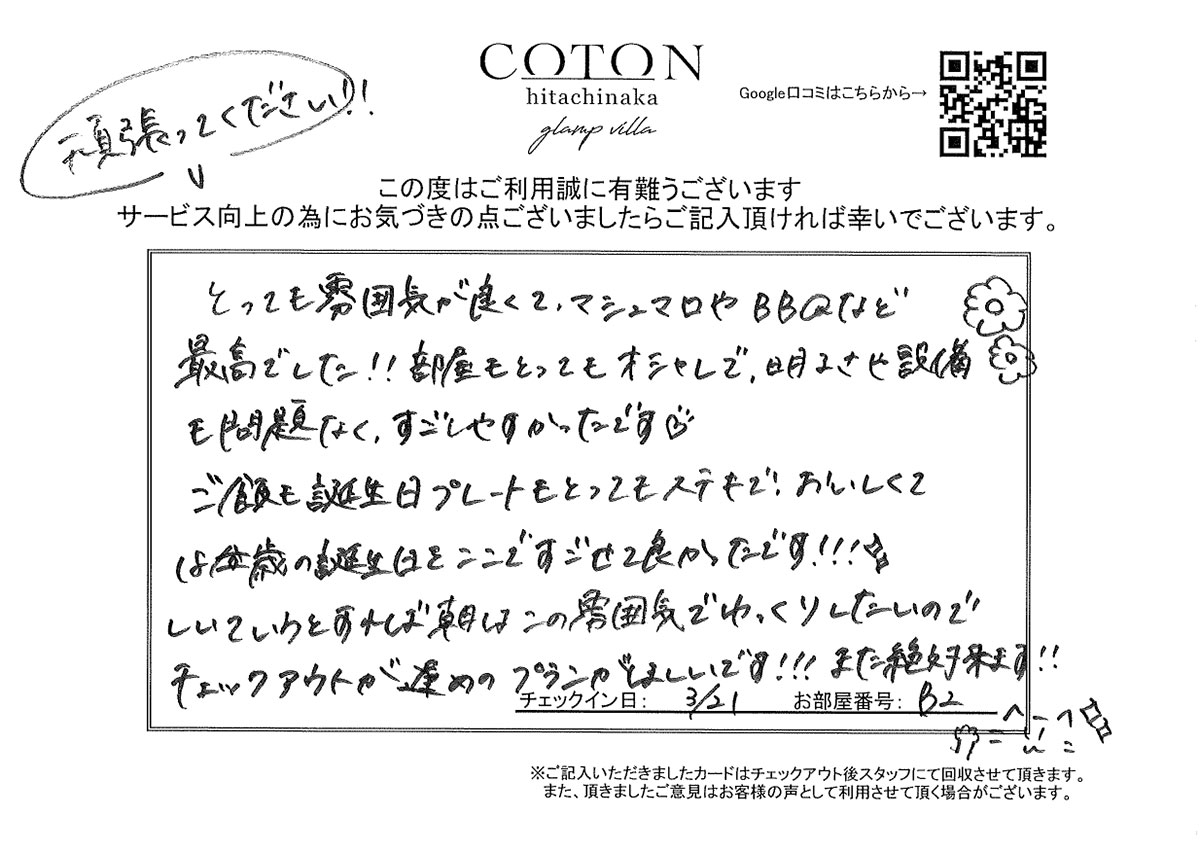 頑張ってください!!
COTON
hitachinaka
glamp villa
Google口コミはこちらから→
この度はご利用誠に有難うございます
サービス向上の為にお気づきの点ございましたらご記入頂ければ幸いでございます。
とっても雰囲気が良くて、マシュマロやBBQなど
最高でした!!部屋もとってもオシャレで、明るさや設備
も問題なく、すごしやすかったです
ご飯も誕生日プレートもとってもステキで!おいしくて
歳の誕生日をここですごせて良かったです!!!
しいていうとすれば朝はこの雰囲気でゆっくりしたいので
チェックアウトが遅めのプランがほしいです!!!また絶対来ます!!
チェックイン日: 3/21 お部屋番号: B2
※ご記入いただきましたカードはチェックアウト後スタッフにて回収させて頂きます。
また、頂きましたご意見はお客様の声として利用させて頂く場合がございます。